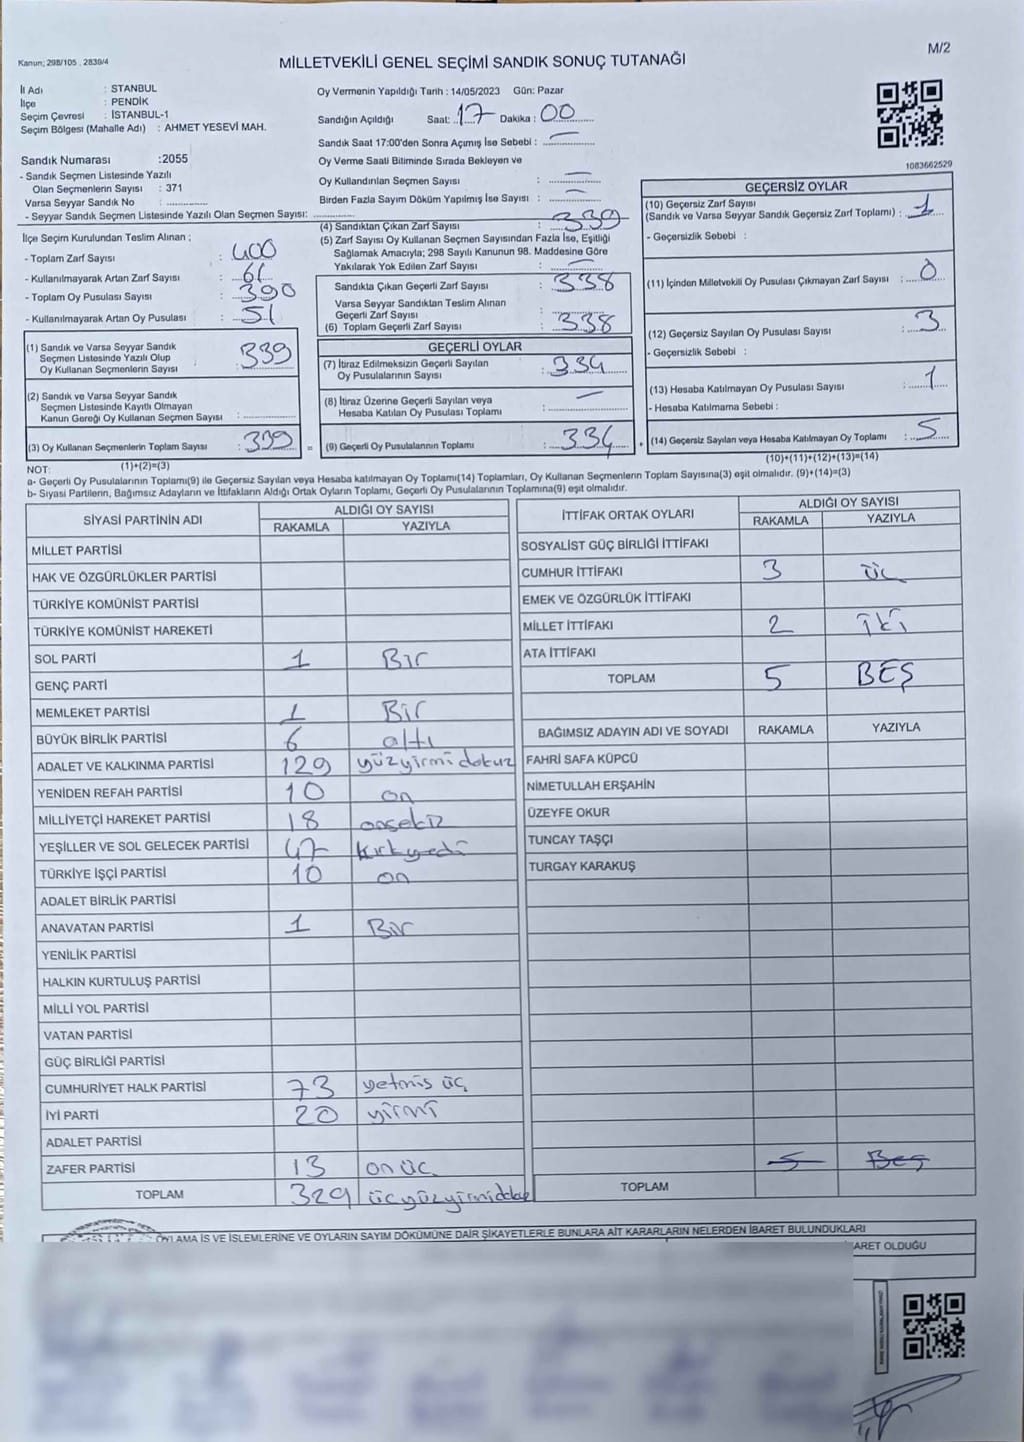 M/2
Kanun; 298/105 , 2839/4
MİLLETVEKİLİ GENEL SEÇİMİ SANDIK SONUÇ TUTANAĞI
İl Adı : STANBUL
İlçe : PENDİK
Seçim Çevresi : İSTANBUL-1
Seçim Bölgesi (Mahalle Adı) : AHMET YESEVİ MAH.
Sandık Numarası :2055
- Sandık Seçmen Listesinde Yazılı
Olan Seçmenlerin Sayısı : 371
Varsa Seyyar Sandık No :
- Seyyar Sandık Seçmen Listesinde Yazılı Olan Seçmen Sayısı:
İlçe Seçim Kurulundan Teslim Alınan ;
- Toplam Zarf Sayısı : 400
- Kullanılmayarak Artan Zarf Sayısı : 61
- Toplam Oy Pusulası Sayısı : 390
- Kullanılmayarak Artan Oy Pusulası : 51
(1) Sandık ve Varsa Seyyar Sandık
Seçmen Listesinde Yazılı Olup
Oy Kullanan Seçmenlerin Sayısı : 339
(2) Sandık ve Varsa Seyyar Sandık
Seçmen Listesinde Kayıtlı Olmayan
Kanun Gereği Oy Kullanan Seçmen Sayısı :
(3) Oy Kullanan Seçmenlerin Toplam Sayısı : 339
(1)+(2)=(3)
Oy Vermenin Yapıldığı Tarih : 14/05/2023 Gün: Pazar
Sandığın Açıldığı Saat: 17 Dakika : 00
Sandık Saat 17:00'den Sonra Açımış İse Sebebi : —
Oy Verme Saati Bitiminde Sırada Bekleyen ve
Oy Kullandırılan Seçmen Sayısı : —
Birden Fazla Sayım Döküm Yapılmış İse Sayısı : —
(4) Sandıktan Çıkan Zarf Sayısı : 339
(5) Zarf Sayısı Oy Kullanan Seçmen Sayısından Fazla İse, Eşitliği
Sağlamak Amacıyla; 298 Sayılı Kanunun 98. Maddesine Göre
Yakılarak Yok Edilen Zarf Sayısı : —
Sandıkta Çıkan Geçerli Zarf Sayısı : 338
Varsa Seyyar Sandıktan Teslim Alınan
Geçerli Zarf Sayısı :
(6) Toplam Geçerli Zarf Sayısı : 338
GEÇERLİ OYLAR
(7) İtiraz Edilmeksizin Geçerli Sayılan
Oy Pusulalarının Sayısı : 334
(8) İtiraz Üzerine Geçerli Sayılan veya
Hesaba Katılan Oy Pusulası Toplamı : —
= (9) Geçerli Oy Pusulalarının Toplamı : 334
1083662529
GEÇERSİZ OYLAR
(10) Geçersiz Zarf Sayısı
(Sandık ve Varsa Seyyar Sandık Geçersiz Zarf Toplamı) : 1
- Geçersizlik Sebebi :
(11) İçinden Milletvekili Oy Pusulası Çıkmayan Zarf Sayısı : 0
(12) Geçersiz Sayılan Oy Pusulası Sayısı : 3
- Geçersizlik Sebebi :
(13) Hesaba Katılmayan Oy Pusulası Sayısı : 1
- Hesaba Katılmama Sebebi :
+ (14) Geçersiz Sayılan veya Hesaba Katılmayan Oy Toplamı : 5
(10)+(11)+(12)+(13)=(14)
NOT:
a- Geçerli Oy Pusulalarının Toplamı(9) ile Geçersiz Sayılan veya Hesaba katılmayan Oy Toplamı(14) Toplamları, Oy Kullanan Seçmenlerin Toplam Sayısına(3) eşit olmalıdır. (9)+(14)=(3)
b- Siyasi Partilerin, Bağımsız Adayların ve İttifakların Aldığı Ortak Oyların Toplamı, Geçerli Oy Pusulalarının Toplamına(9) eşit olmalıdır.
SİYASİ PARTİNİN ADI ALDIĞI OY SAYISI
RAKAMLA YAZIYLA
MİLLET PARTİSİ
HAK VE ÖZGÜRLÜKLER PARTİSİ
TÜRKİYE KOMÜNİST PARTİSİ
TÜRKİYE KOMÜNİST HAREKETİ
SOL PARTİ 1 Bir
GENÇ PARTİ
MEMLEKET PARTİSİ 1 Bir
BÜYÜK BİRLİK PARTİSİ 6 altı
ADALET VE KALKINMA PARTİSİ 129 yüzyirmi dokuz
YENİDEN REFAH PARTİSİ 10 on
MİLLİYETÇİ HAREKET PARTİSİ 18 onsekiz
YEŞİLLER VE SOL GELECEK PARTİSİ 47 kırkyedi
TÜRKİYE İŞÇİ PARTİSİ 10 on
ADALET BİRLİK PARTİSİ
ANAVATAN PARTİSİ 1 Bir
YENİLİK PARTİSİ
HALKIN KURTULUŞ PARTİSİ
MİLLİ YOL PARTİSİ
VATAN PARTİSİ
GÜÇ BİRLİĞİ PARTİSİ
CUMHURİYET HALK PARTİSİ 73 yetmis üç
İYİ PARTİ 20 yirmi
ADALET PARTİSİ
ZAFER PARTİSİ 13 onüç
TOPLAM 329
İTTİFAK ORTAK OYLARI ALDIĞI OY SAYISI
RAKAMLA YAZIYLA
SOSYALİST GÜÇ BİRLİĞİ İTTİFAKI
CUMHUR İTTİFAKI 3 üç
EMEK VE ÖZGÜRLÜK İTTİFAKI
MİLLET İTTİFAKI 2 iki
ATA İTTİFAKI
TOPLAM 5 BEŞ
BAĞIMSIZ ADAYIN ADI VE SOYADI RAKAMLA YAZIYLA
FAHRİ SAFA KÜPCÜ
NİMETULLAH ERŞAHİN
ÜZEYFE OKUR
TUNCAY TAŞÇI
TURGAY KARAKUŞ
5 Beş
TOPLAM
OYLAMA İŞ VE İŞLEMLERİNE VE OYLARIN SAYIM DÖKÜMÜNE DAİR ŞİKAYETLERLE BUNLARA AİT KARARLARIN NELERDEN İBARET BULUNDUKLARI
BARET OLDUĞU